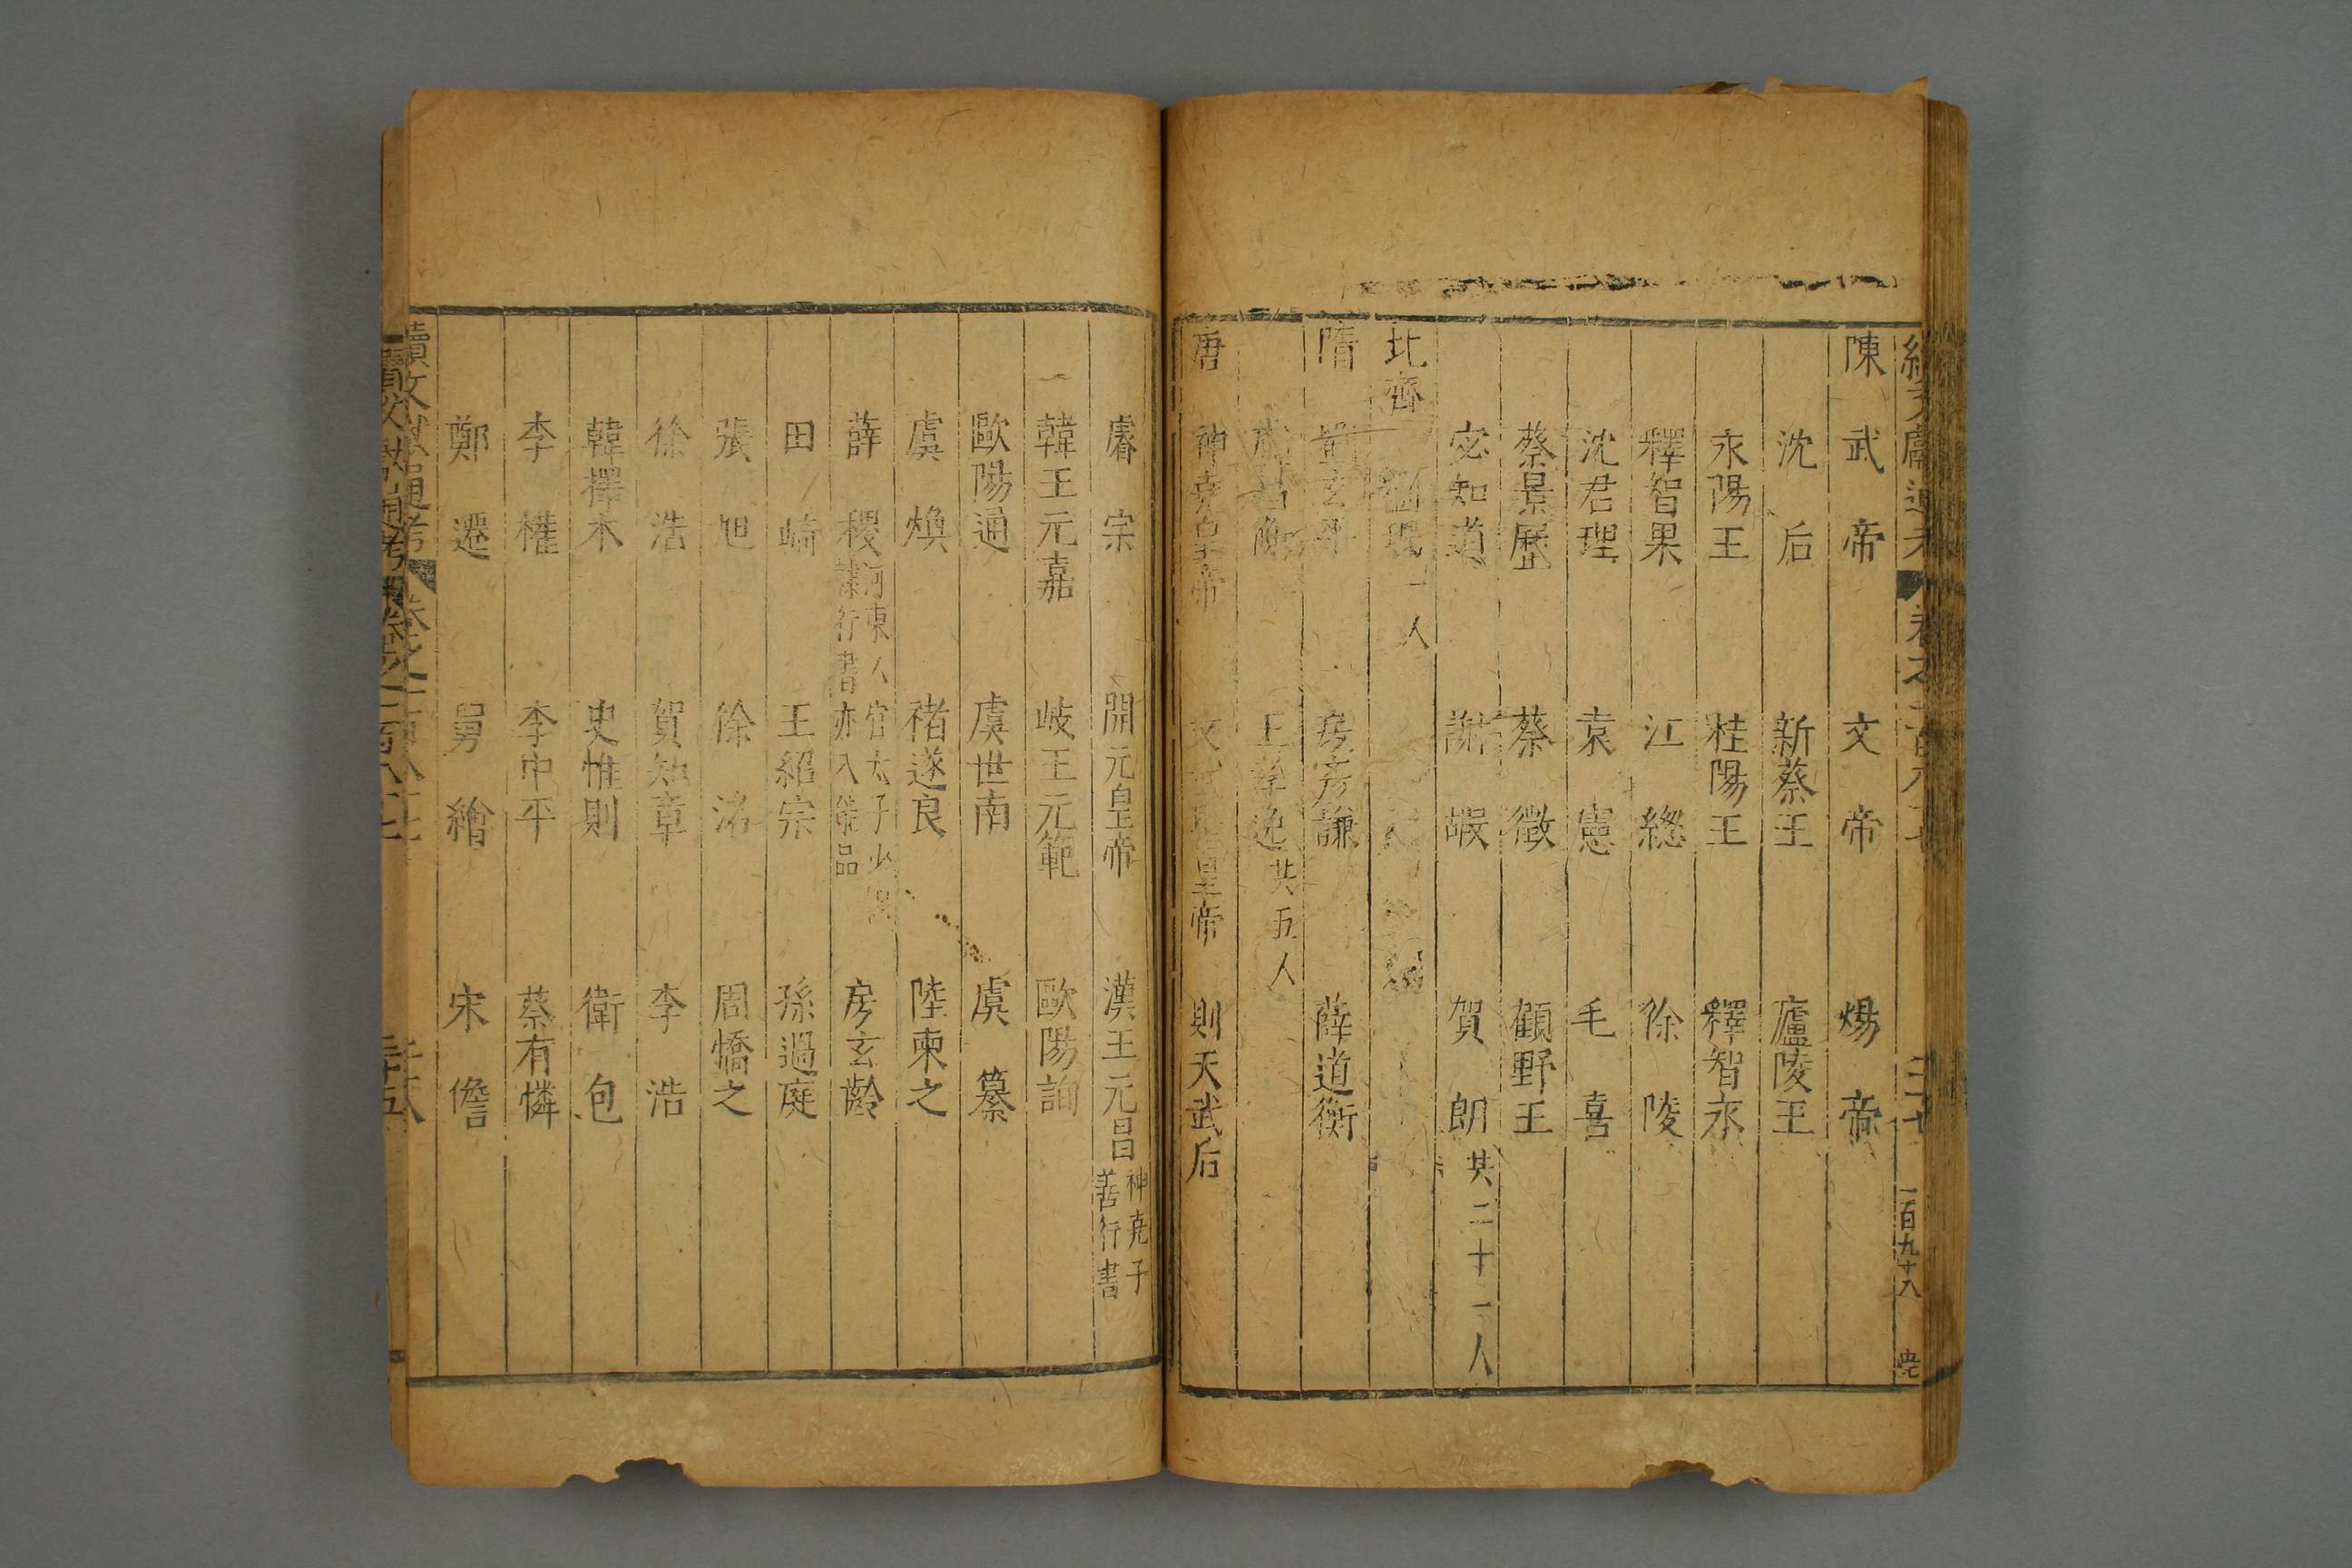 陳武帝 文帝 煬帝
沈后 新蔡王 廬陵王
永陽王 桂陽王 釋智永
釋智果 江總 徐陵
沈君理 袁憲 毛喜
蔡景歷 蔡徵 顧野王
宓知道 謝嘏 賀朗共二十一人
北齊 劉珉一人
隋 房彥謙 薛道衡
王孝逸共五人
唐 神堯皇帝 文 皇帝 則天武后
睿宗 開元皇帝 漢王元昌神堯子善行書
韓王元嘉 岐王元範 歐陽詢
歐陽通 虞世南 虞纂
虞煥 褚遂良 陸柬之
薛稷河東人官太子少保隸行書亦入能品 房玄齡
田琦 王紹宗 孫過庭
張旭 徐浩 周憍之
徐浩 賀知章 李浩
韓擇木 史惟則 衛包
李權 李中平 蔡有憐
鄭遷 舅繪 宋儋
一百九十八